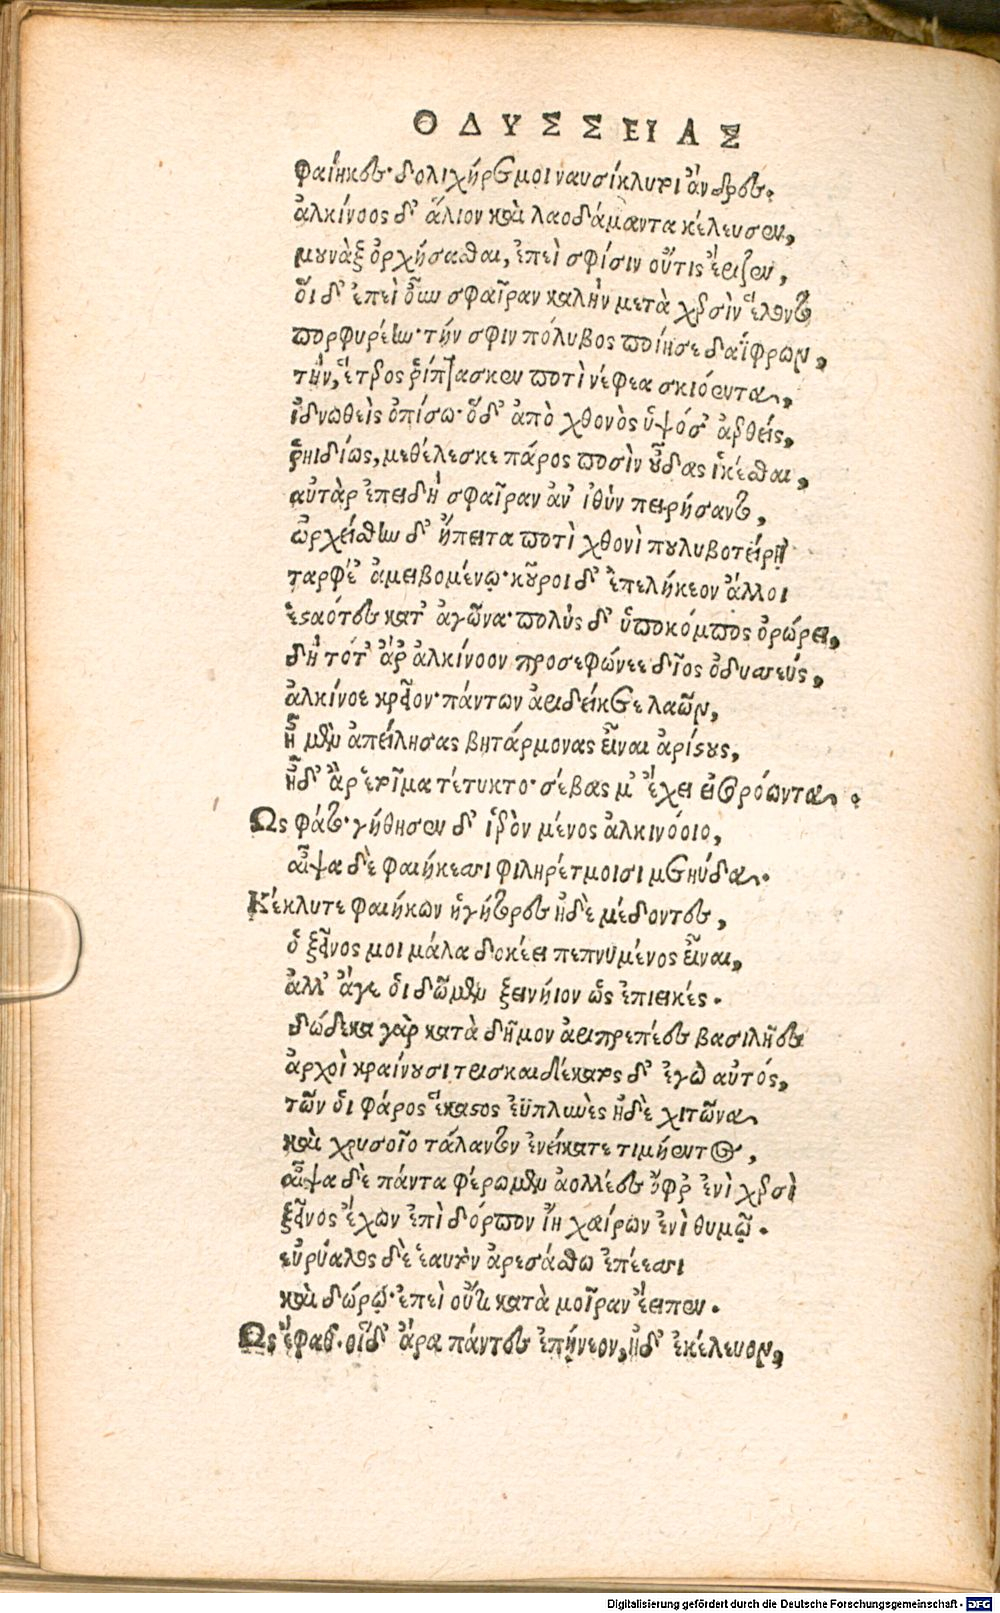 ΟΔΥΣΣΕΙΑΣ
φαίηκες· δολιχήρετμοι ναυσίκλυτοι ἄνδρες.
ἀλκίνοος δ' ἅλιον καὶ λαοδάμαντα κέλευσεν,
μουνὰξ ὀρχήσασθαι, ἐπεὶ σφίσιν οὔτις ἔριζεν,
οἱ δ' ἐπεὶ οὖν σφαῖραν καλὴν μετὰ χερσὶν ἕλοντο
πορφυρέην· τήν σφιν πόλυβος ποίησε δαΐφρων,
τὴν, ἕτερος ῥίπτασκεν ποτὶ νέφεα σκιόεντα,
ἰδνωθεὶς ὀπίσω· ὁ δ' ἀπὸ χθονὸς ὑψόσ' ἀερθείς,
ῥηιδίως, μεθέλεσκε πάρος ποσὶν οὖδας ἱκέσθαι,
αὐτὰρ ἐπειδὴ σφαῖραν ἀν' ἰθὺν πειρήσαντο,
ὠρχείσθην δ' ἤπειτα ποτὶ χθονὶ πουλυβοτείρῃ
ταρφέ' ἀμειβομένω· κοῦροι δ' ἐπελήκεον ἄλλοι
ἑσταότες κατ' ἀγῶνα· πολὺς δ' ὑπὸ κόμπος ὀρώρει,
δὴ τότ' ἄρ' ἀλκίνοον προσεφώνεε δῖος ὀδυσσεύς,
ἀλκίνοε κρεῖον· πάντων ἀριδείκετε λαῶν,
ἦ μὲν ἀπείλησας βητάρμονας εἶναι ἀρίστους,
ἠδ' ἂρ ἑτοῖμα τέτυκτο· σέβας μ' ἔχει εἰσορόωντα.
Ως φάτο· γήθησεν δ' ἱερὸν μένος ἀλκινόοιο,
αἶψα δὲ φαιήκεσσι φιληρέτμοισι μετηύδα.
Κέκλυτε φαιήκων ἡγήτορες ἠδὲ μέδοντες,
ὁ ξεῖνος μοι μάλα δοκέει πεπνυμένος εἶναι,
ἀλλ' ἄγε οἱ δῶμεν ξεινήιον ὡς ἐπιεικές.
δώδεκα γὰρ κατὰ δῆμον ἀριπρεπέες βασιλῆες
ἀρχοὶ κραίνουσι τρισκαιδέκατος δ' ἐγὼ αὐτός,
τῶν οἱ φάρος ἕκαστος ἐϋπλυνὲς ἠδὲ χιτῶνα
καὶ χρυσοῖο τάλαντον ἐνείκατε τιμήεντος,
αἶψα δὲ πάντα φέρωμεν ἀολλέες ὄφρ' ἐνὶ χερσὶ
ξεῖνος ἔχων ἐπὶ δόρπον ἴῃ χαίρων ἐνὶ θυμῷ.
εὐρύαλος δὲ ἑαυτὸν ἀρεσάσθω ἐπέεσσι
καὶ δώρῳ· ἐπεὶ οὔτι κατὰ μοῖραν ἔειπεν.
Ως ἔφαθ'. οἱ δ' ἄρα πάντες ἐπῄνεον, ἠδ' ἐκέλευον,
Digitalisierung gefördert durch die Deutsche Forschungsgemeinschaft - DFG